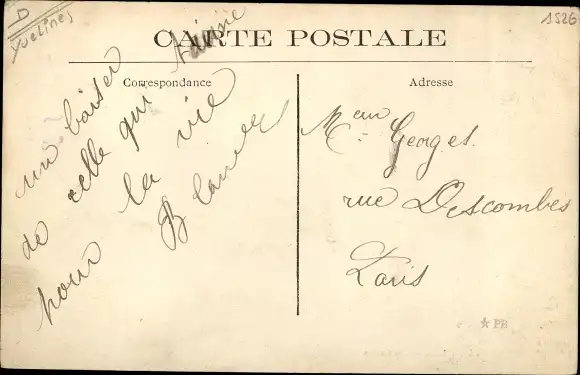 D
Yvelines
1526
CARTE POSTALE
Correspondance
Adresse
un baiser
de celle qui t'aime
pour la vie
Blanche
Mʳ Georges.
rue Descombes
Paris
★ PB